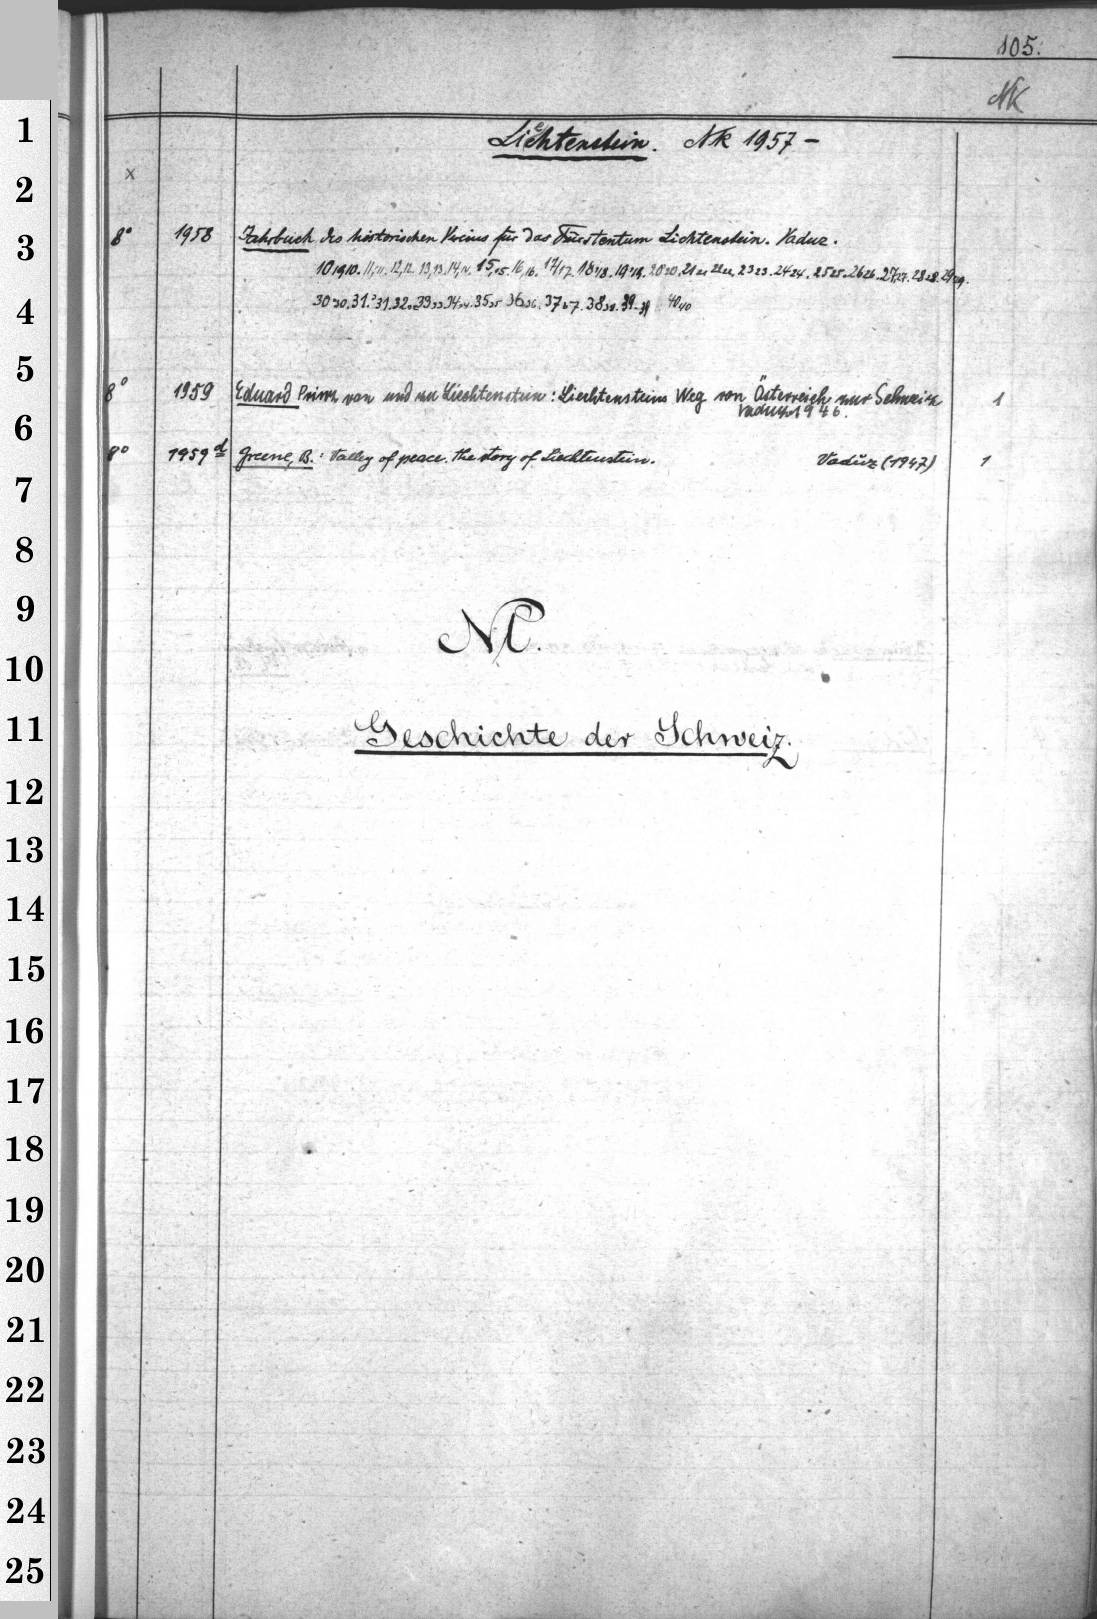 105.
NK
1 Liechtenstein. NK 1957 –
2 x
3 8° 1958 Jahrbuch des historischen Vereins für das Fürstentum Liechtenstein. Vaduz.
10,10. 11,11. 12,12. 13,13. 14,14. 15,15. 16,16. 17/17. 18/18. 19/19. 20 20. 21 21 22 22, 23 23. 24 24. 25 25. 26 26. 27,27. 28 28. 29 29.
4 30 30. 31. 31. 32 32 33 33. 34 34. 35 35 36 36. 37 37. 38 38. 39 39 40 40
5
8° 1959 Eduard Prinz von und zu Liechtenstein: Liechtensteins Weg von Österreich zur Schweiz 1
6 Vaduz 1946.
8° 1959 d Greene, B.: Valley of peace. The story of Liechtenstein. Vaduz (1947) 1
7
8
9
NL.
10
11 Geschichte der Schweiz.
12
13
14
15
16
17
18
19
20
21
22
23
24
25